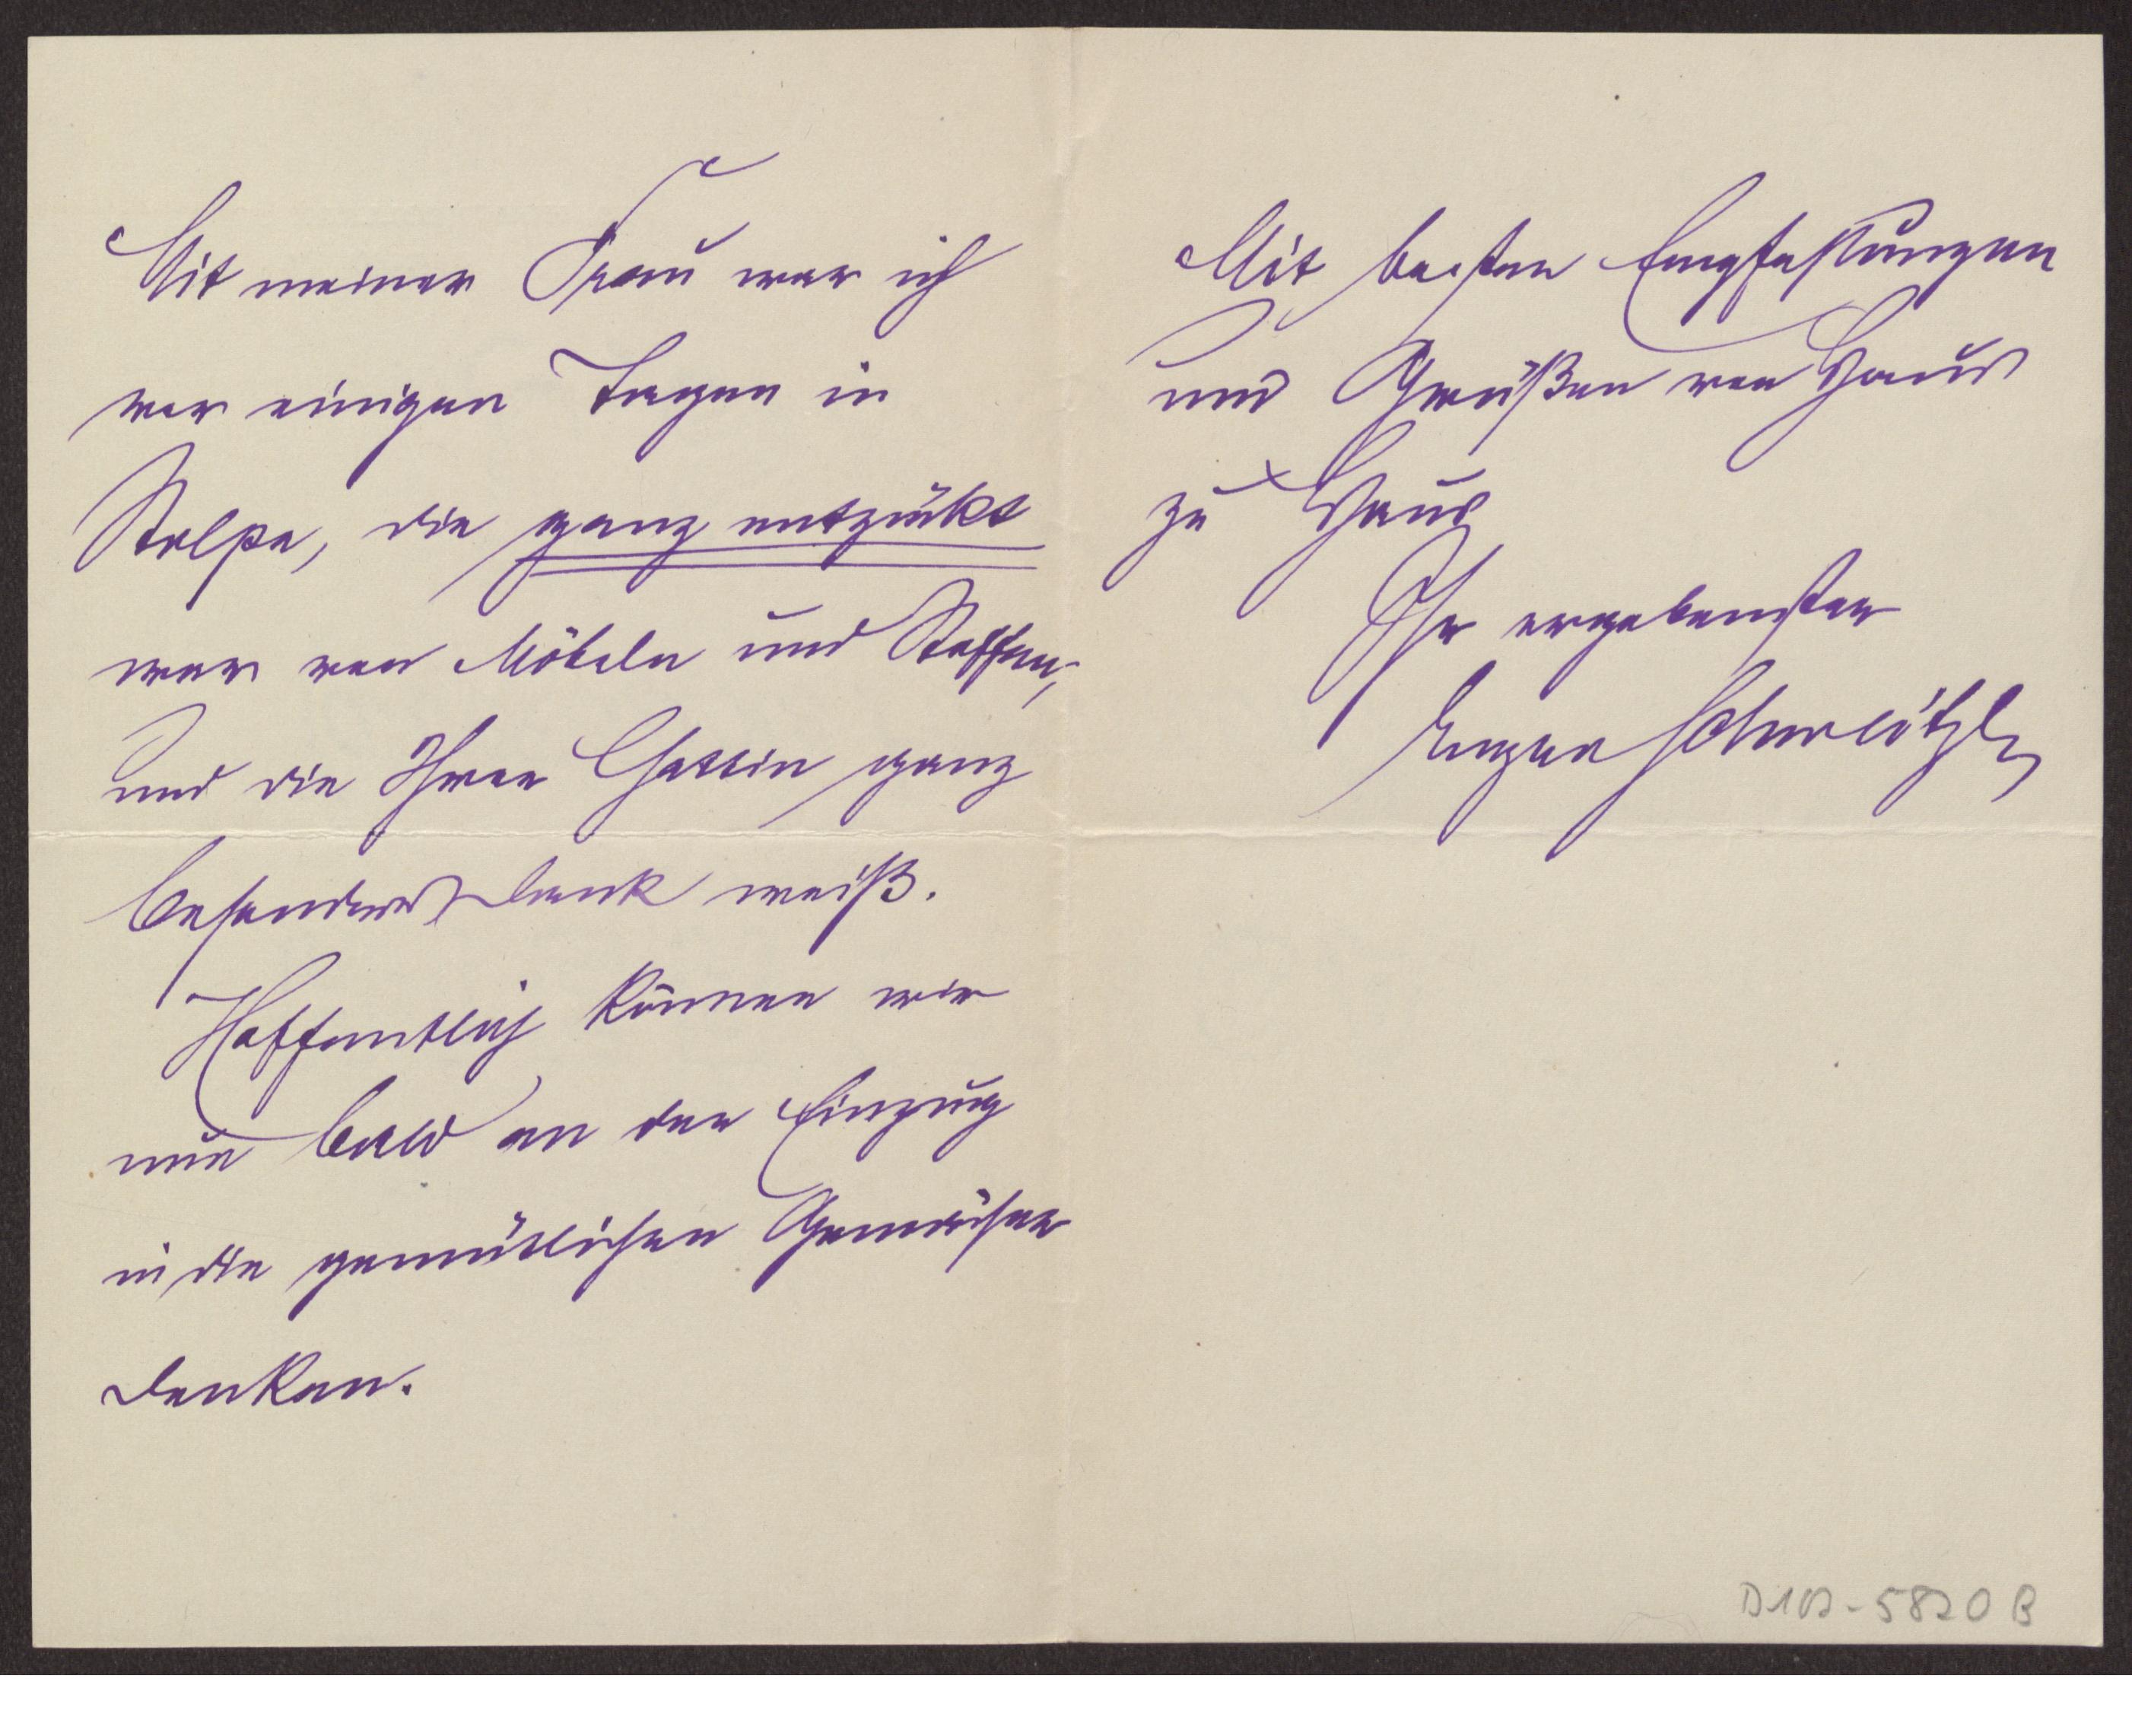 Mit meiner Frau war ich
vor einigen Tagen in
Stolpe, die ganz entzückt
war von Möbeln und Stoffen,
und die Ihrer Gattin ganz
besonders Dank weiß.
Hoffentlich können wir
nun bald an den Einzug
in die gemütlichen Gemächer
denken.
Mit besten Empfehlungen
und Grüßen von Haus
zu Haus
Ihr ergebenster
Eugen
D102-5820 B